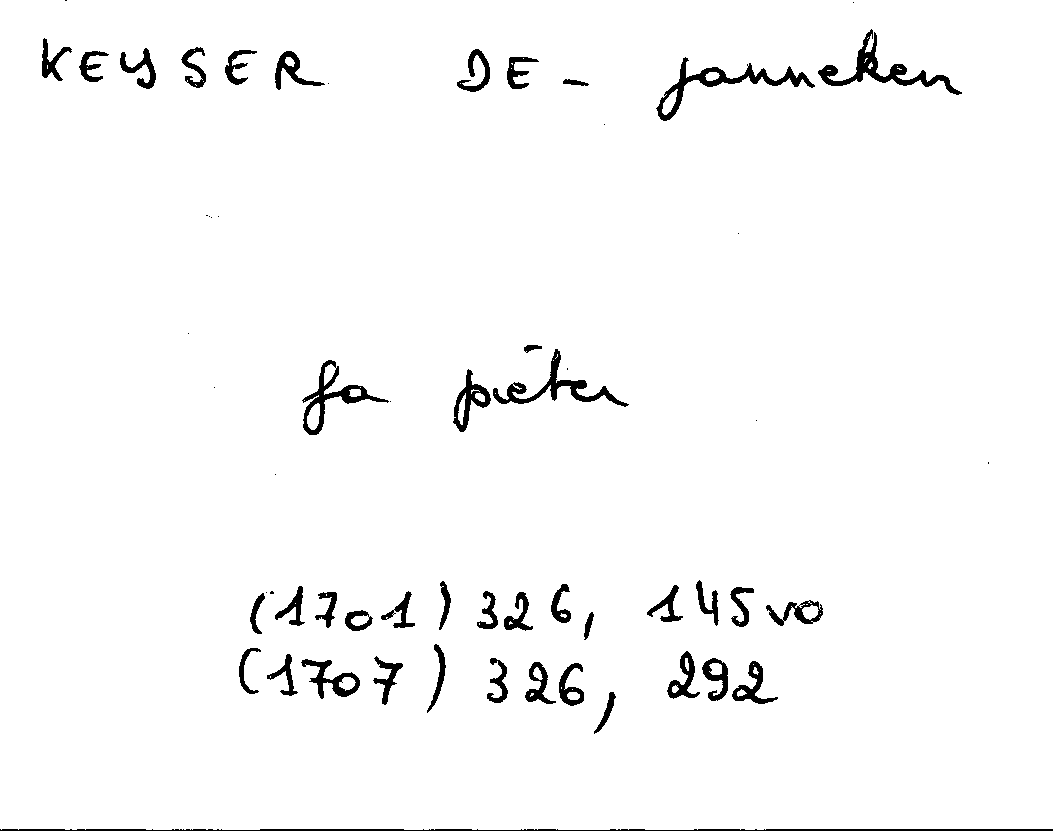 KEYSER DE - Janneken
fa pieter
(1701) 326, 145vo
(1707) 326, 292